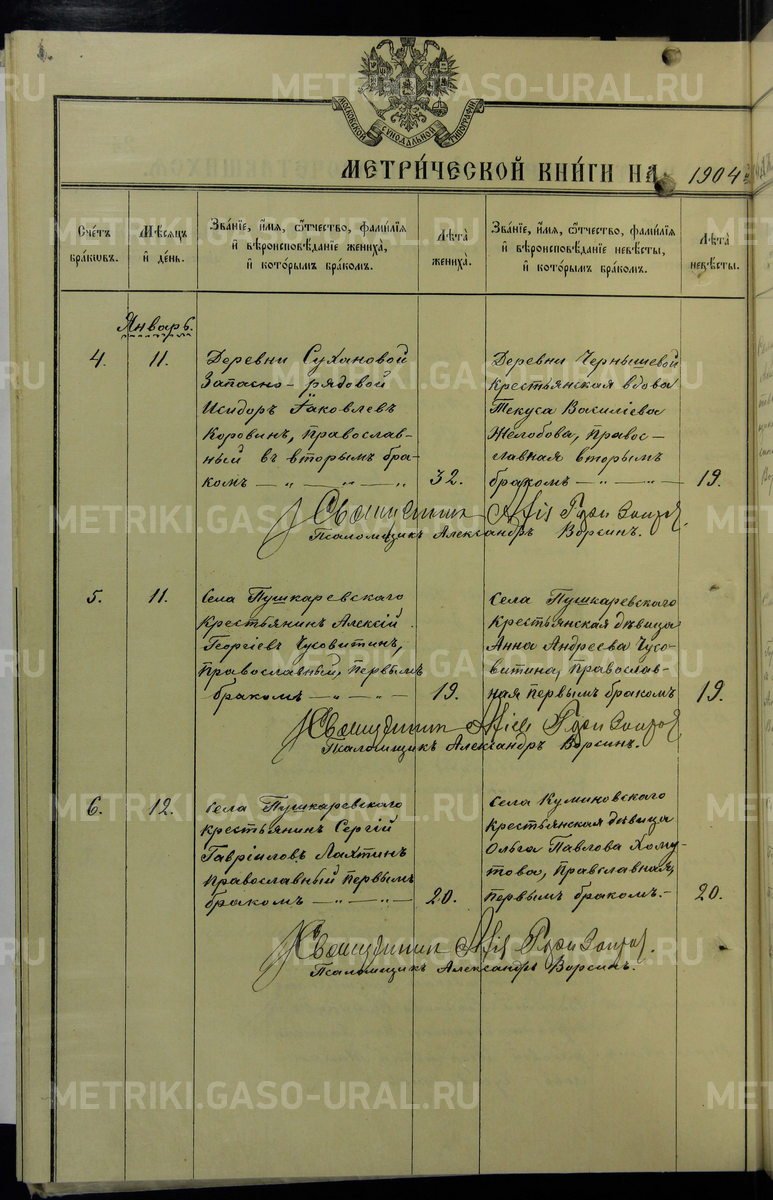 МОСКОВСКОЙ СѴНОДАЛЬНОЙ ТИПОГРАФІИ
МЕТРИ́ЧЕСКОЙ КНИ́ГИ НА 1904
Сче́тъ бра́кѡвъ.
Мѣ́сяцъ и҆ де́нь.
Зва́нїе, и҆́мя, ѻ҆́тчество, фами́лїя и҆ вѣроисповѣ́данїе жениха̀, и҆ кото́рымъ бра́комъ.
Лѣ́та жениха̀.
Зва́нїе, и҆́мя, ѻ҆́тчество, фами́лїя и҆ вѣроисповѣ́данїе невѣ́сты, и҆ кото́рымъ бра́комъ.
Лѣ́та невѣ́сты.
Январь.
4.
11.
Деревни Сухановой
Запасно-рядовой
Исидоръ Іаковлевъ
Коровинъ, православ-
ный вторымъ бра-
комъ — „ — „
32.
Деревни Чернышевой
крестьянская вдова
Текуса Василіева
Желобова, право-
славная вторымъ
бракомъ — „ —
19.
Священникъ
Псаломщикъ Александръ Ворсинъ.
5.
11.
Села Пушкаревскаго
крестьянинъ Алексій
Георгіевъ Чусовитинъ,
православный, первымъ
бракомъ — „ — „ —
19.
Села Пушкаревскаго
крестьянская дѣвица
Анна Андреева Чусо-
витина, православ-
ная первымъ бракомъ
19.
Священникъ
Псаломщикъ Александръ Ворсинъ.
6.
12.
Села Пушкаревскаго
крестьянинъ Сергій
Гавріиловъ Лахтинъ
православный первымъ
бракомъ — „ — „ —
20.
Села Куминовскаго
крестьянская дѣвица
Ольга Павлова Хому-
това, православная,
первымъ бракомъ.-
20.
Священникъ
Псаломщикъ Александръ Ворсинъ.
METRIKI.GASO-URAL.RU